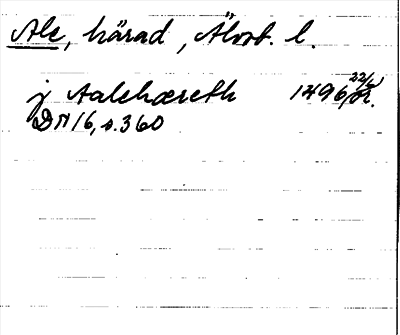 Ale, härad, Älvsb. l.
j Aalehæreth 1496 22/
DN 16, s. 360